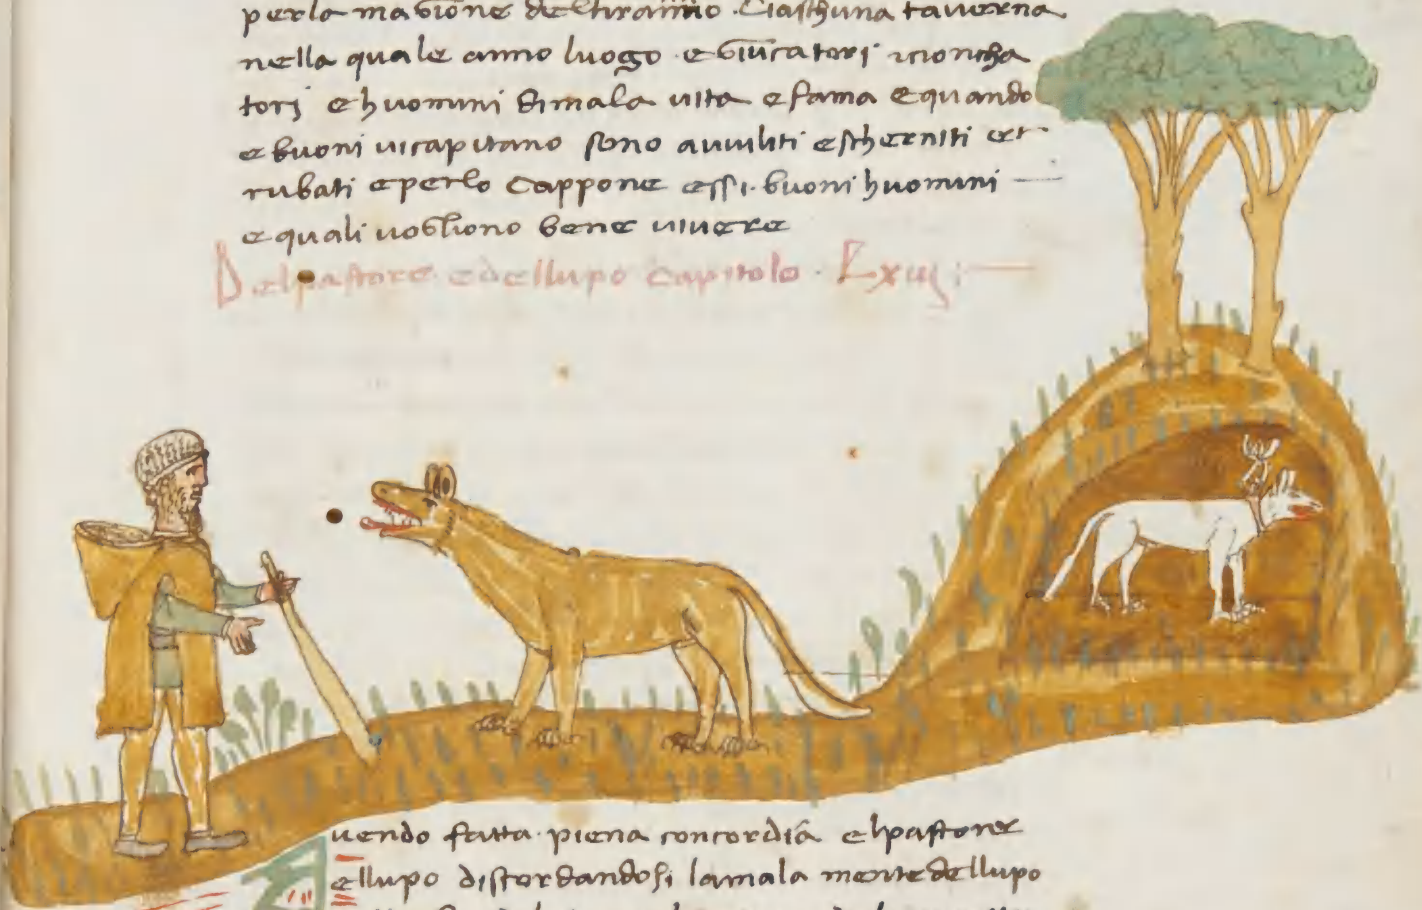 per la magione del tiranno . Ciaschuna taverna
nella quale anno luogo . e giucatori . cioncha
tori e huomini di mala vita e fama e quando
e buoni vi capitano sono avviliti e scherniti et
rubati e per lo cappone essi . buoni huomini
e quali vogliono bene vivere
Del pastore . e del lupo capitolo . Lxiiij :
Avendo fatta . piena concordia el pastore
el lupo discordandosi la mala mente del lupo